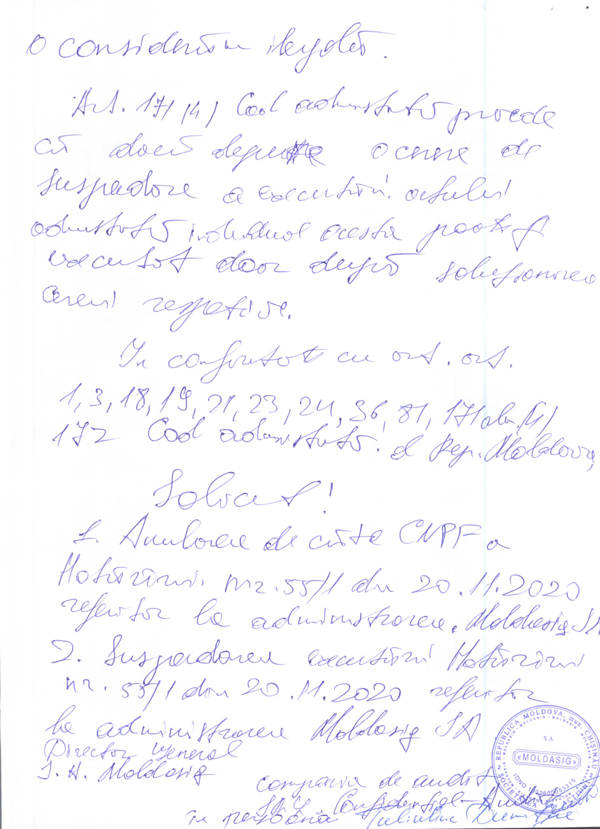 O considerăm ilegală.
Art. 171 (4) Cod administrativ prevede
că dacă depune o cerere de
suspendare a executării actului
administrativ individual acesta poate fi
executat doar după soluționarea
cererii respective.
In conformitate cu art. art.
1, 3, 18, 19, 21, 23, 24, 36, 81, 171 alin. (4)
172 Cod administrativ. al Rep. Moldova,
Solicit!
1. Anularea de către CNPF a
Hotărîrii nr. 55/1 din 20.11.2020
referitor la administrarea Moldasig SA
2. Suspendarea executării Hotărîrii
nr. 55/1 din 20.11.2020 referitor
la administrarea Moldasig SA
Director General
S.A. Moldasig
compania de audit
Confidential-Audit
în persoana
REPUBLICA MOLDOVA, mun. CHIȘINĂU
S.A.
«MOLDASIG»